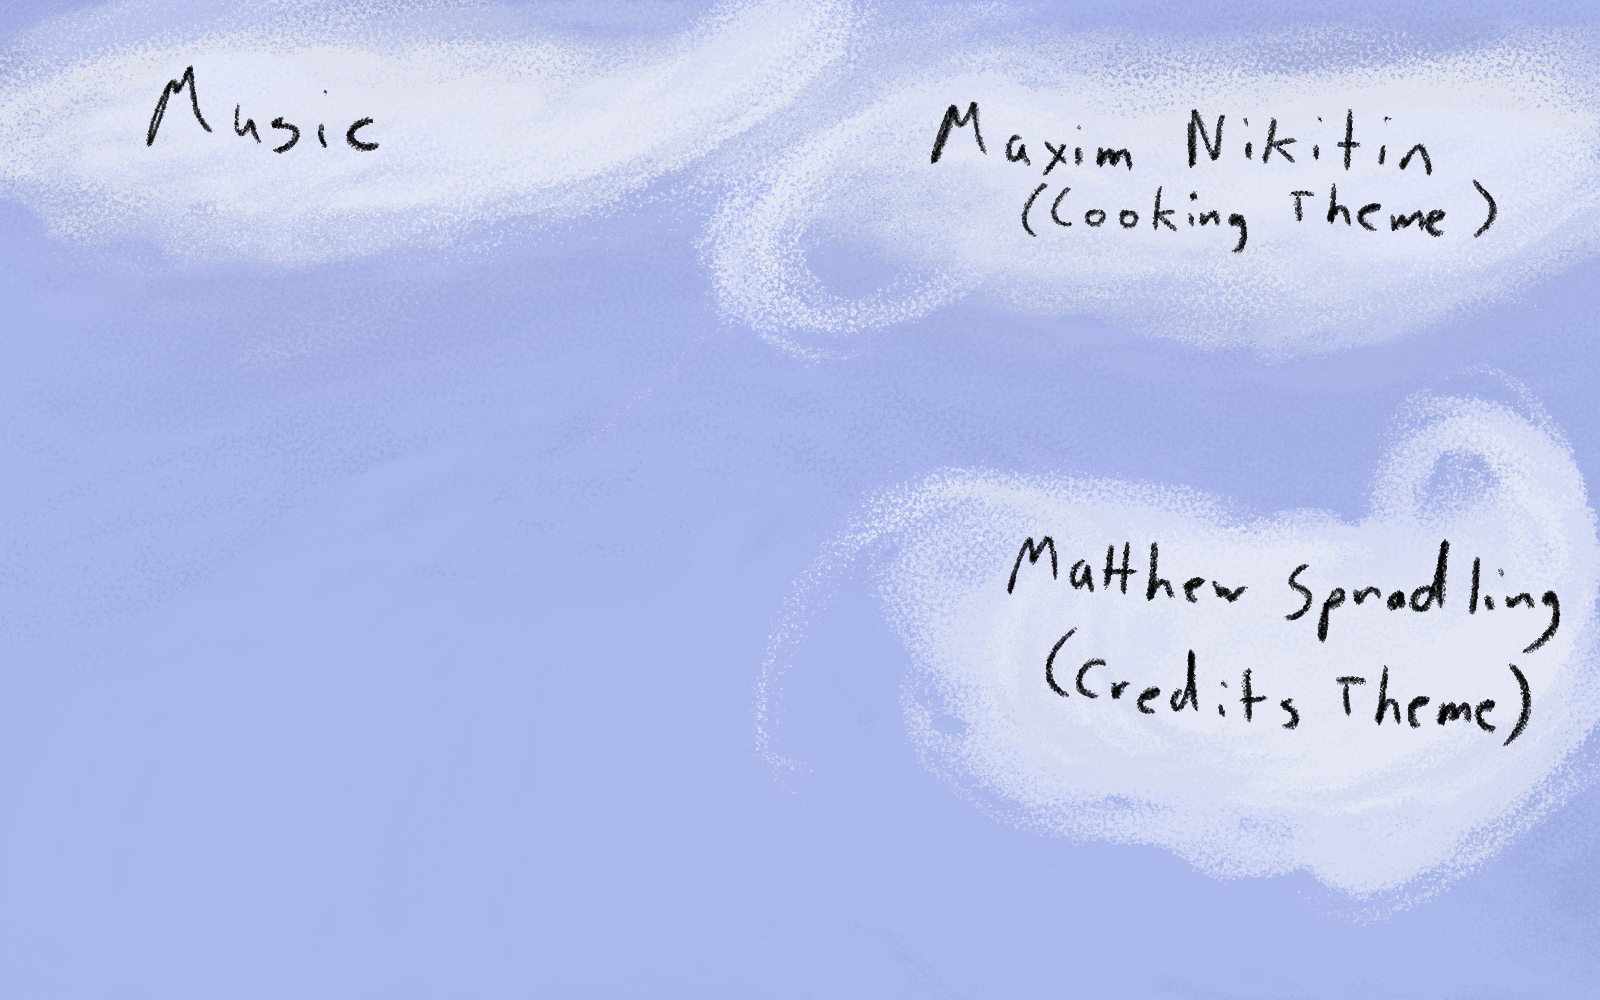 Music
Maxim Nikitin
(Cooking Theme)
Matthew Spradling
(Credits Theme)